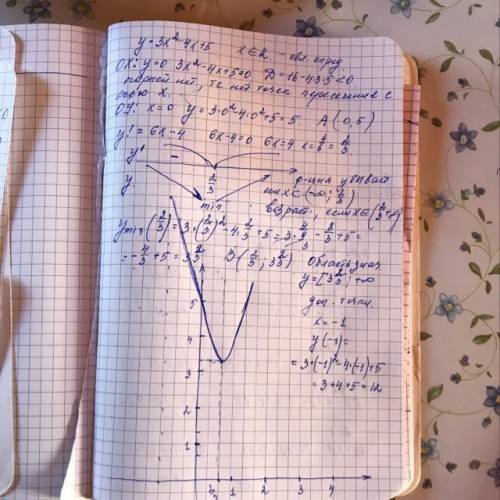 y=3x²-4x+5 x∈R. - обл. опред
OX: y=0 3x²-4x+5=0 D=16-4·3·5<0
корней нет, т.е. нет точек пересечения с
осью X.
OY: x=0 y=3·0²-4·0²+5=5. A(0,5)
y'=6x-4 6x-4=0 6x=4 x=4/6=2/3
y' -
y 2/3 ф-ция убывает
min если x∈(-∞; 2/3)
возраст., если x∈(2/3;+∞)
y min(2/3)=3·(2/3)²-4·2/3+5=3·4/9-8/3+5=
=-4/3+5=3 2/3 B(2/3; 3 2/3) Область знач.
y=[3 2/3; +∞
доп. точки
x=-1
y(-1)=
=3·(-1)²-4·(-1)+5
=3+4+5=12
5
4
3
2
1
2/3 1 2 3 4